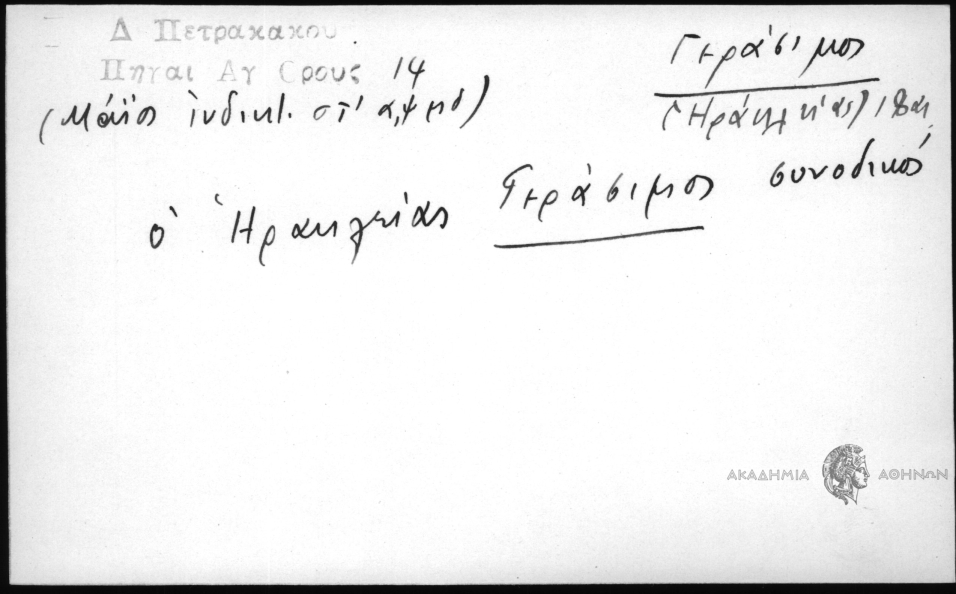 Δ Πετρακακου
Πηγαι Αγ Ορους 14
(Μάϊος ἰνδικτ. στ' α,ψμδ)
Γεράσιμος
(Ἡρακλείας) 18αι.
ὁ Ἡρακλείας Γεράσιμος συνοδικός
ΑΚΑΔΗΜΙΑ ΑΘΗΝΩΝ